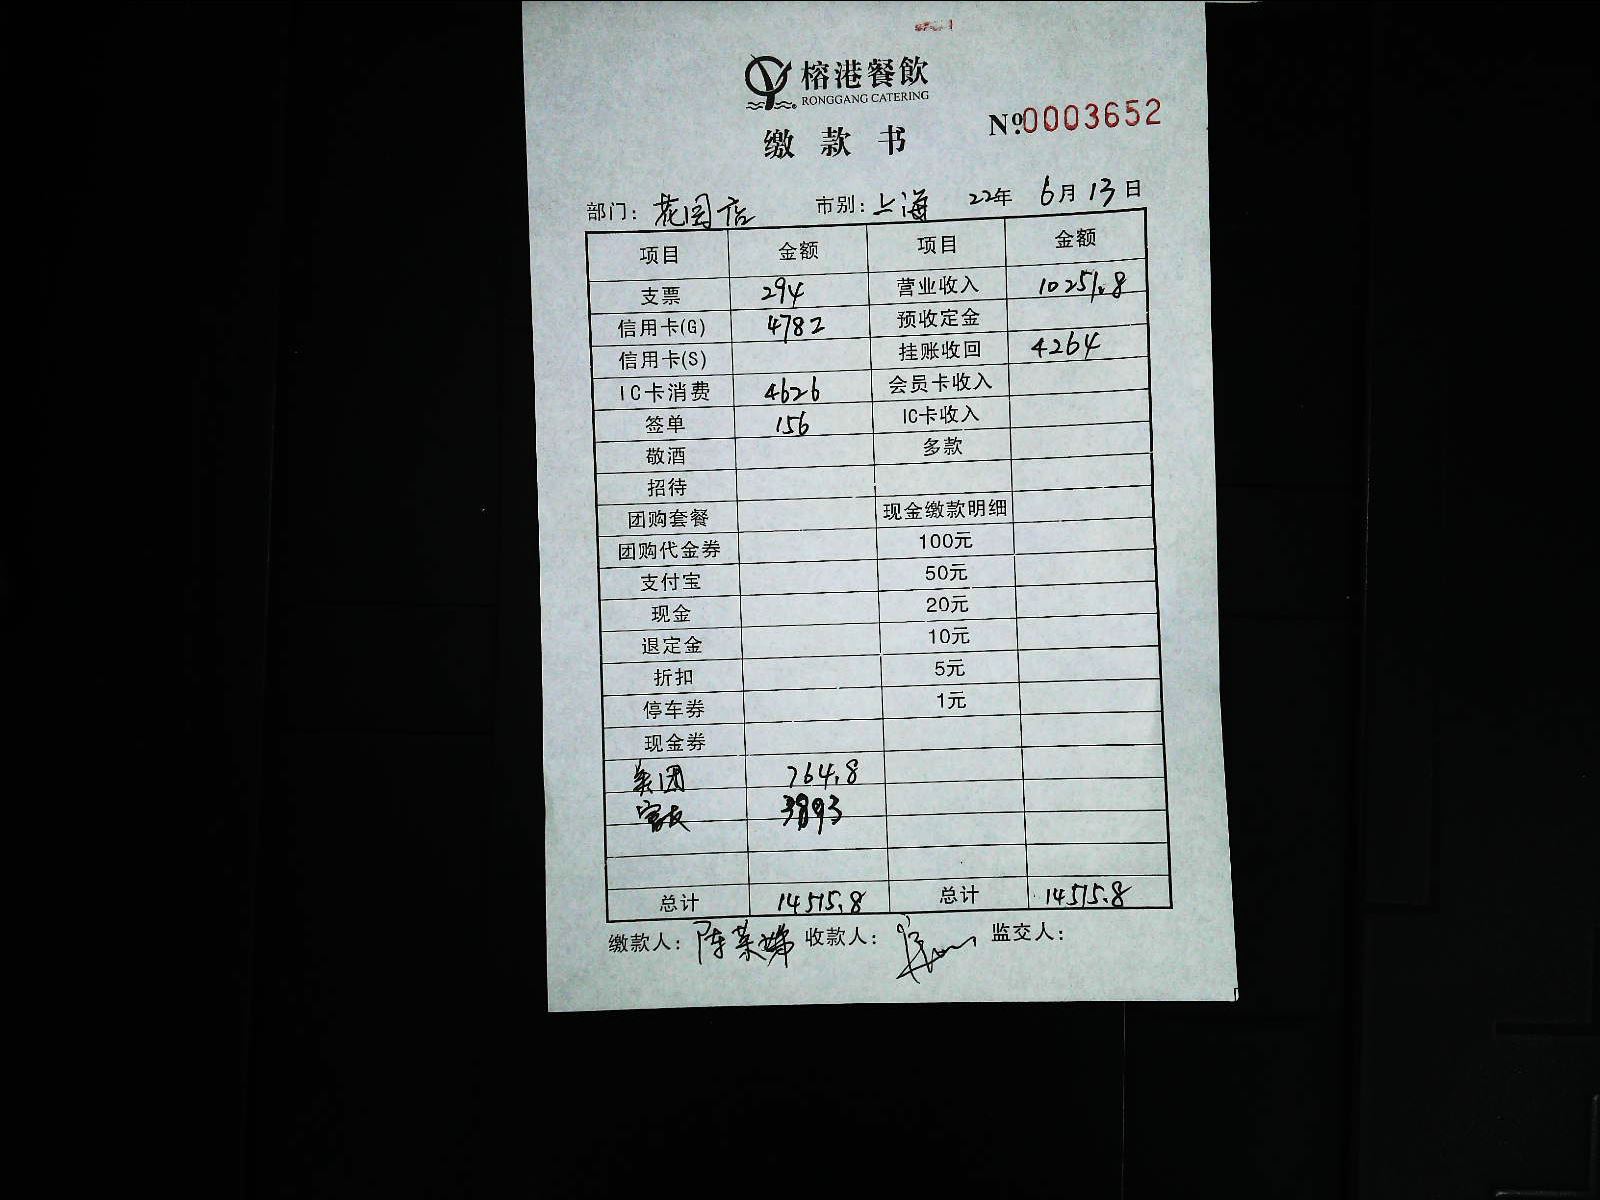 榕港餐飲
RONGGANG CATERING
缴款书
№0003652
部门: 花园店 市别: 上海 22年 6月 13日
项目 金额 项目 金额
支票 294 营业收入 10251.8
信用卡(G) 4782 预收定金
信用卡(S) 挂账收回 4264
IC卡消费 4626 会员卡收入
签单 156 IC卡收入
敬酒 多款
招待
团购套餐 现金缴款明细
团购代金券 100元
支付宝 50元
现金 20元
退定金 10元
折扣 5元
停车券 1元
现金券
美团 764.8
3893
总计 14515.8 总计 14515.8
缴款人: 陈 收款人: 监交人: